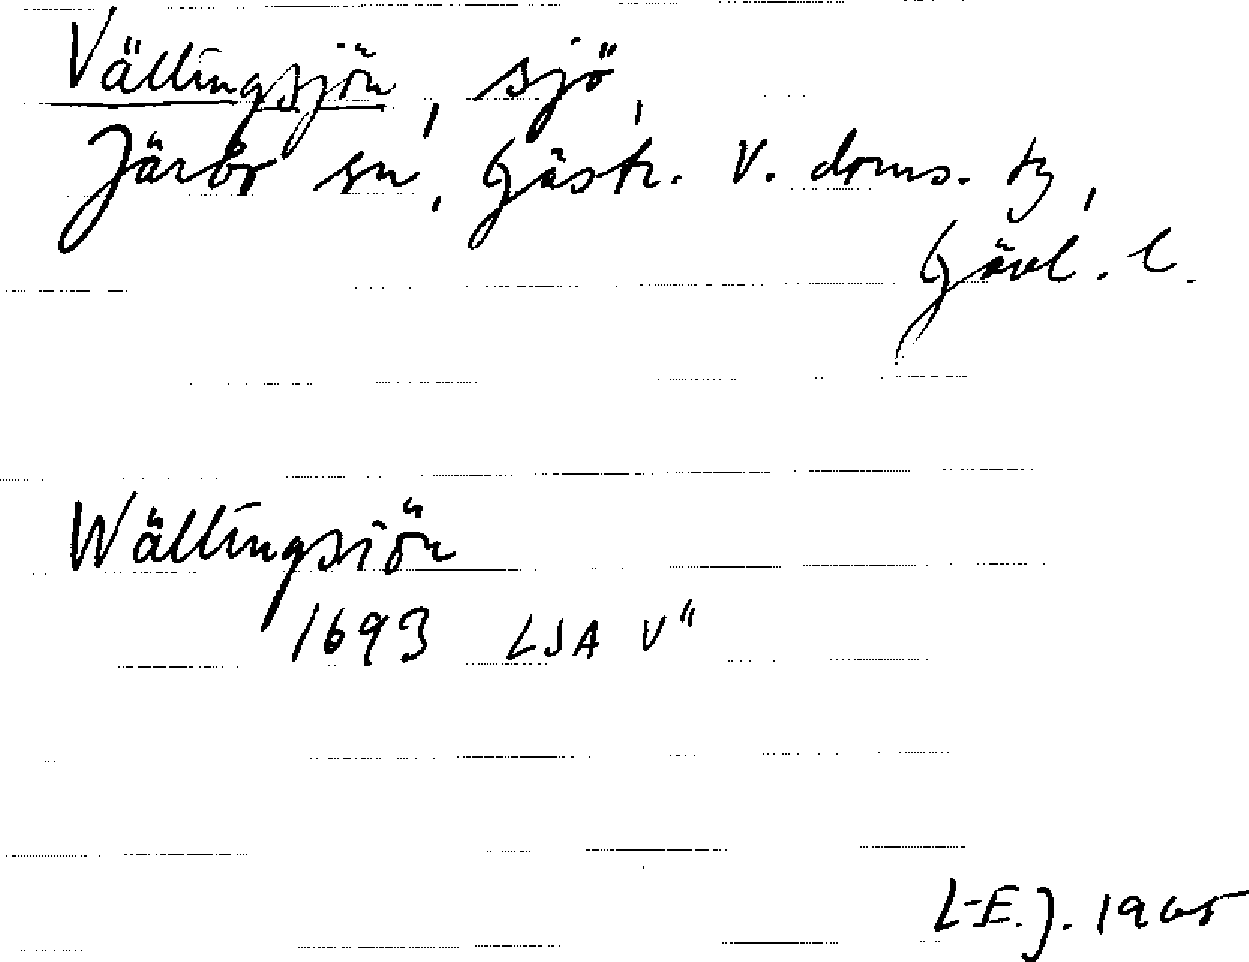 Vällingsjön, sjö,
Järbo sn, Gästr. V. doms. tg,
Gävl. l.
Wällingsiön
1693 LSA V"
L-E. J. 1965